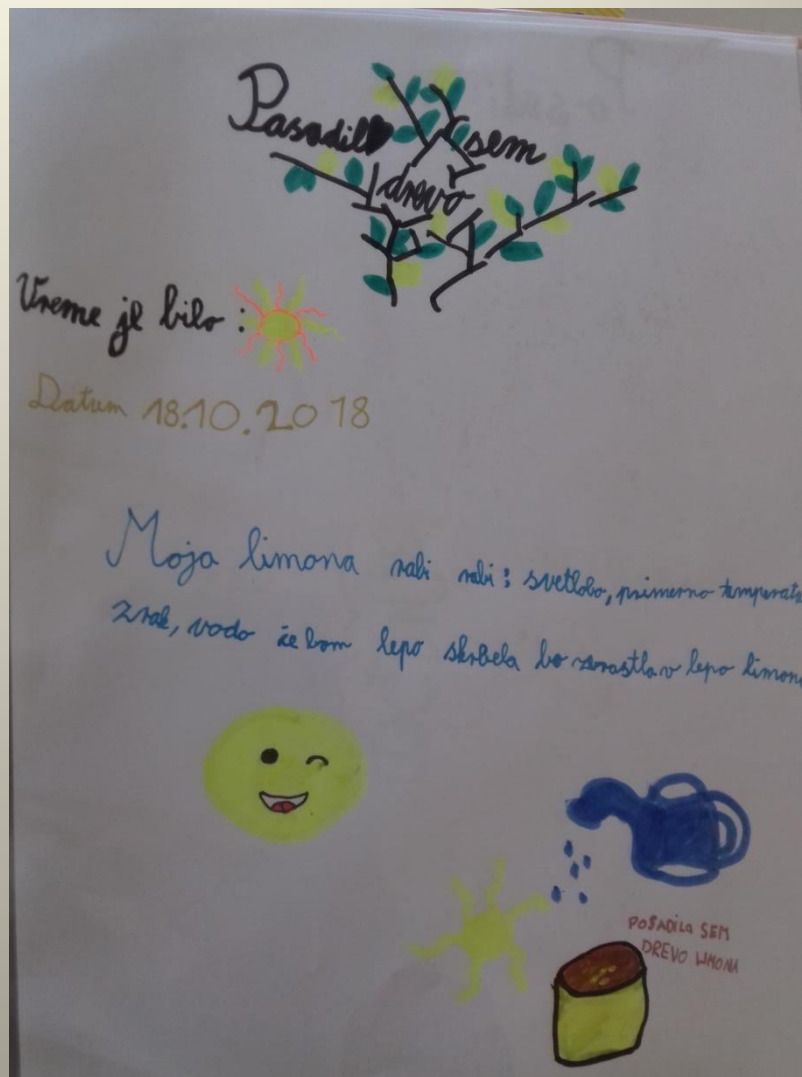 Posadil sem
drevo
Vreme je bilo:
Datum 18.10.2018
Moja limona rabi rabi: svetlobo, primerno temperatu
zrak, vodo če bom lepo skrbela bo zrastla v lepo limono
POSADILA SEM
DREVO LIMONA